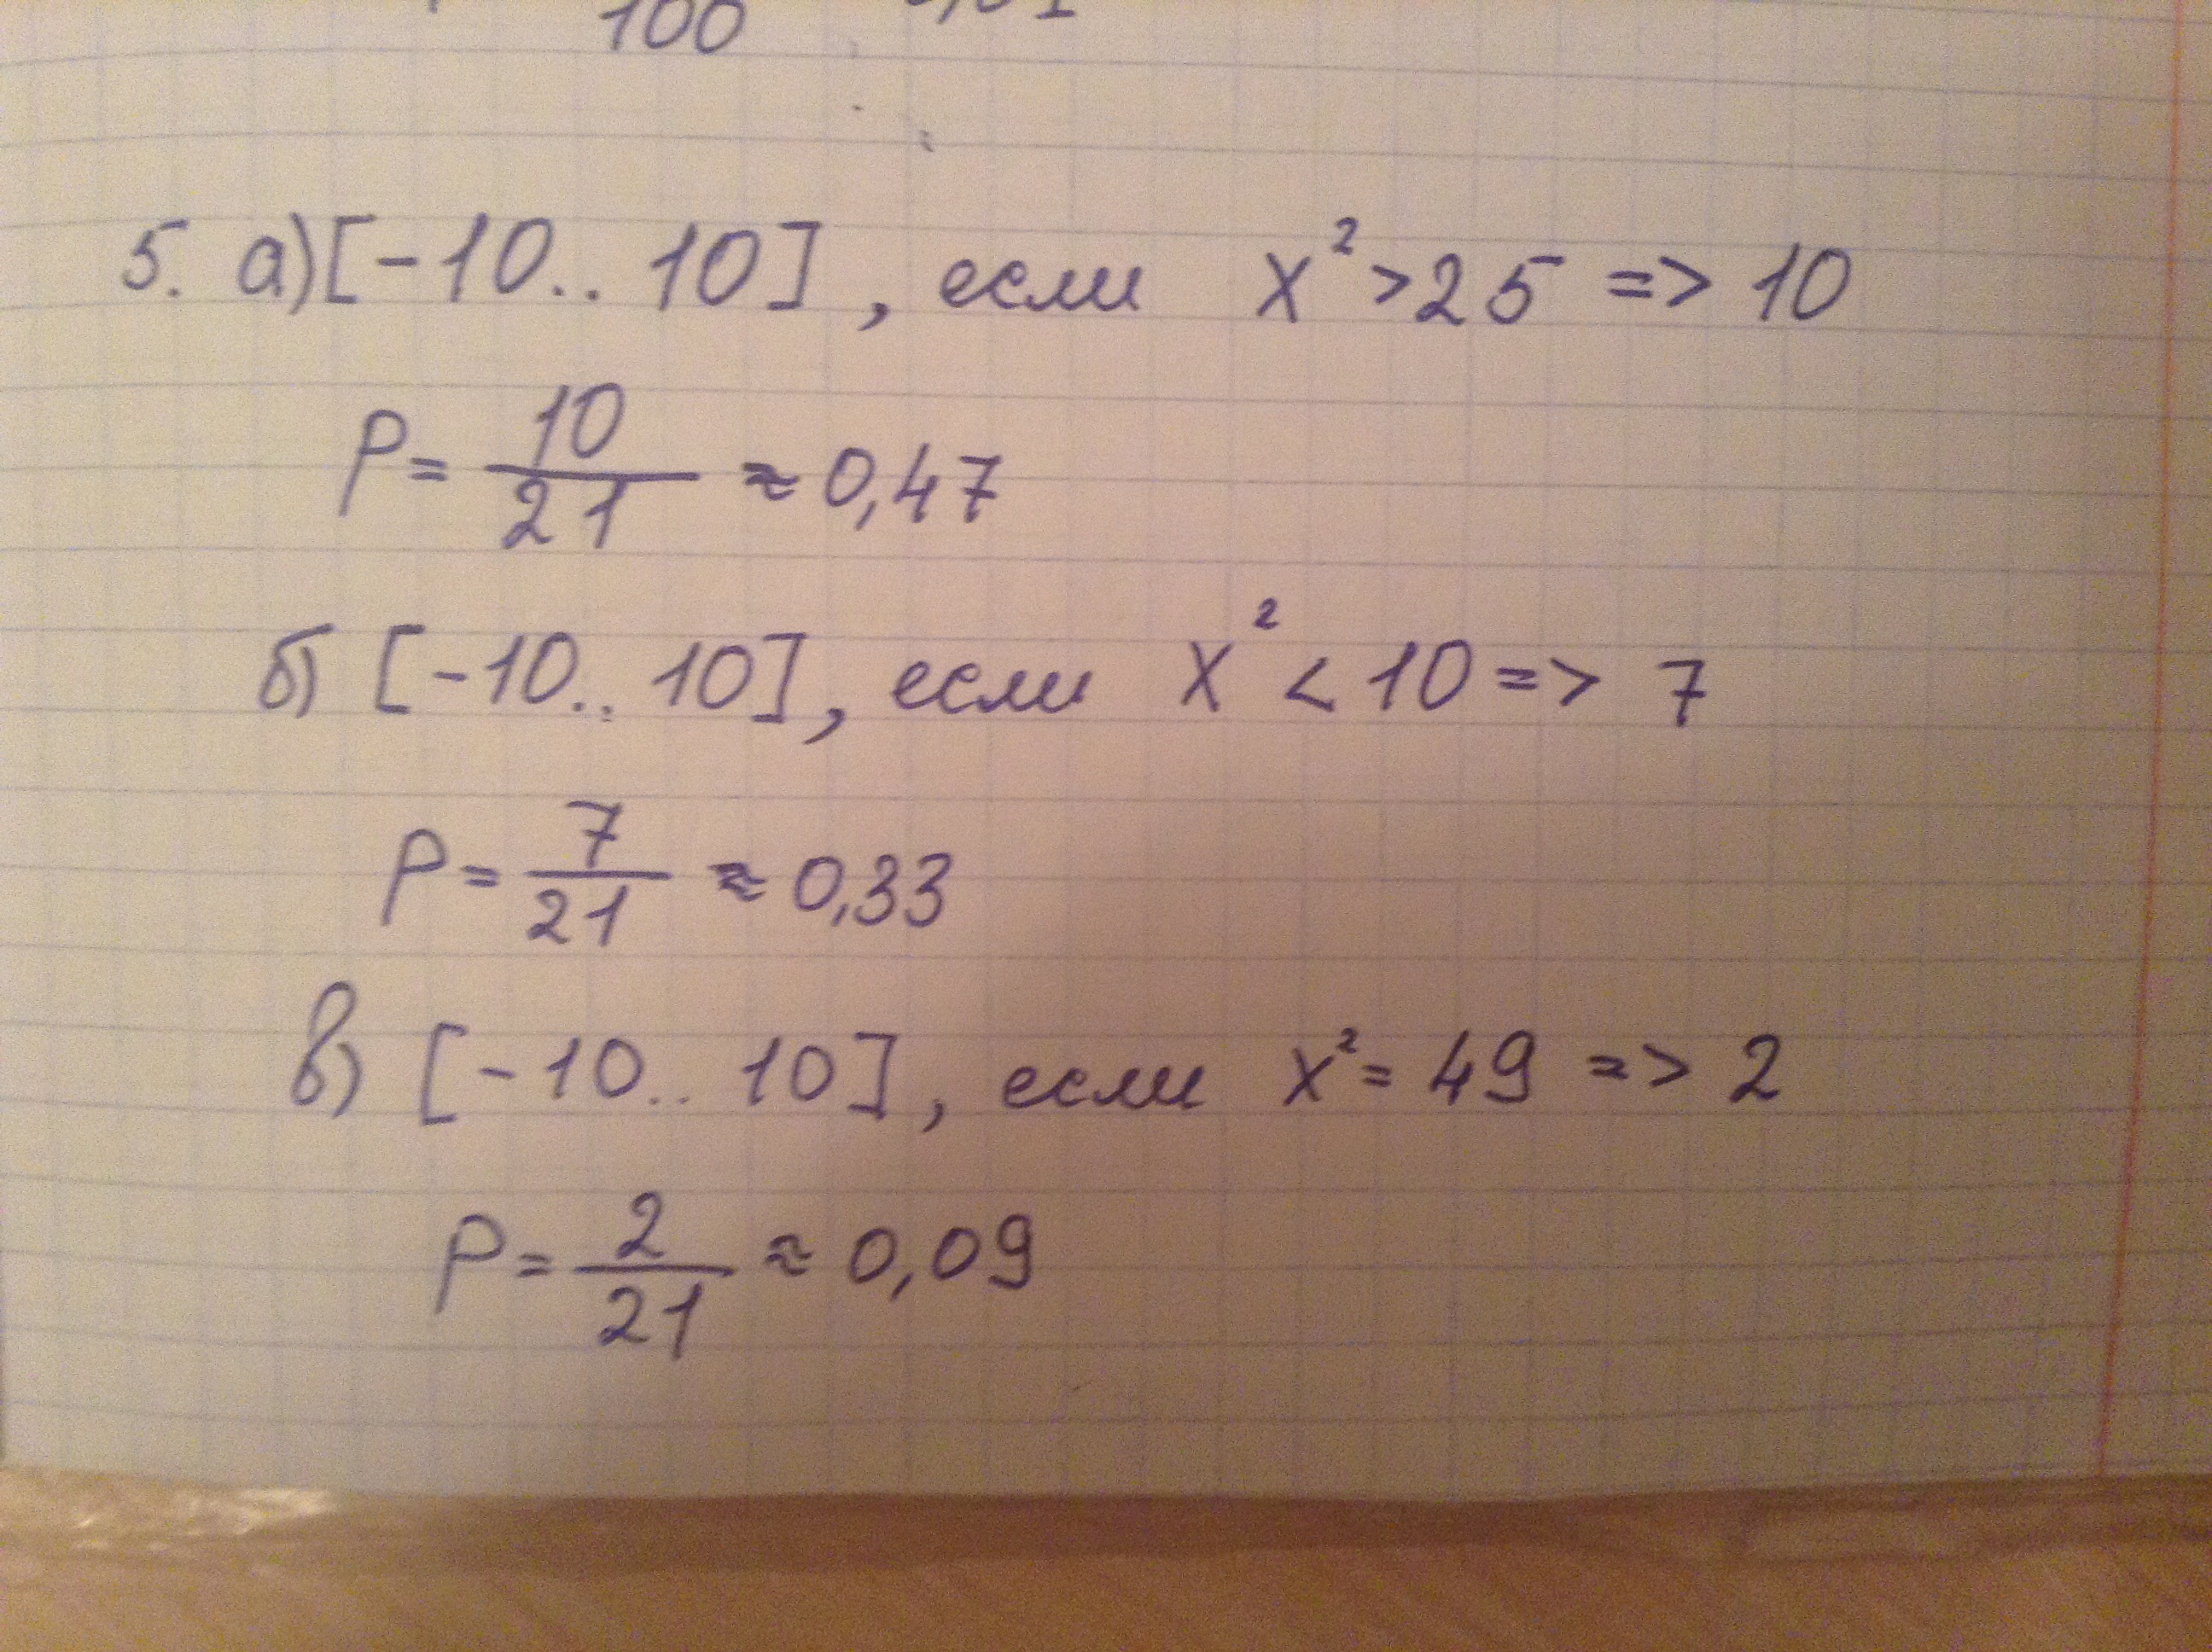 100
5. а) [-10.. 10], если x² > 25 => 10
P = 10/21 ≈ 0,47
б) [-10.. 10], если x² < 10 => 7
P = 7/21 ≈ 0,33
в) [-10.. 10], если x² = 49 => 2
P = 2/21 ≈ 0,09